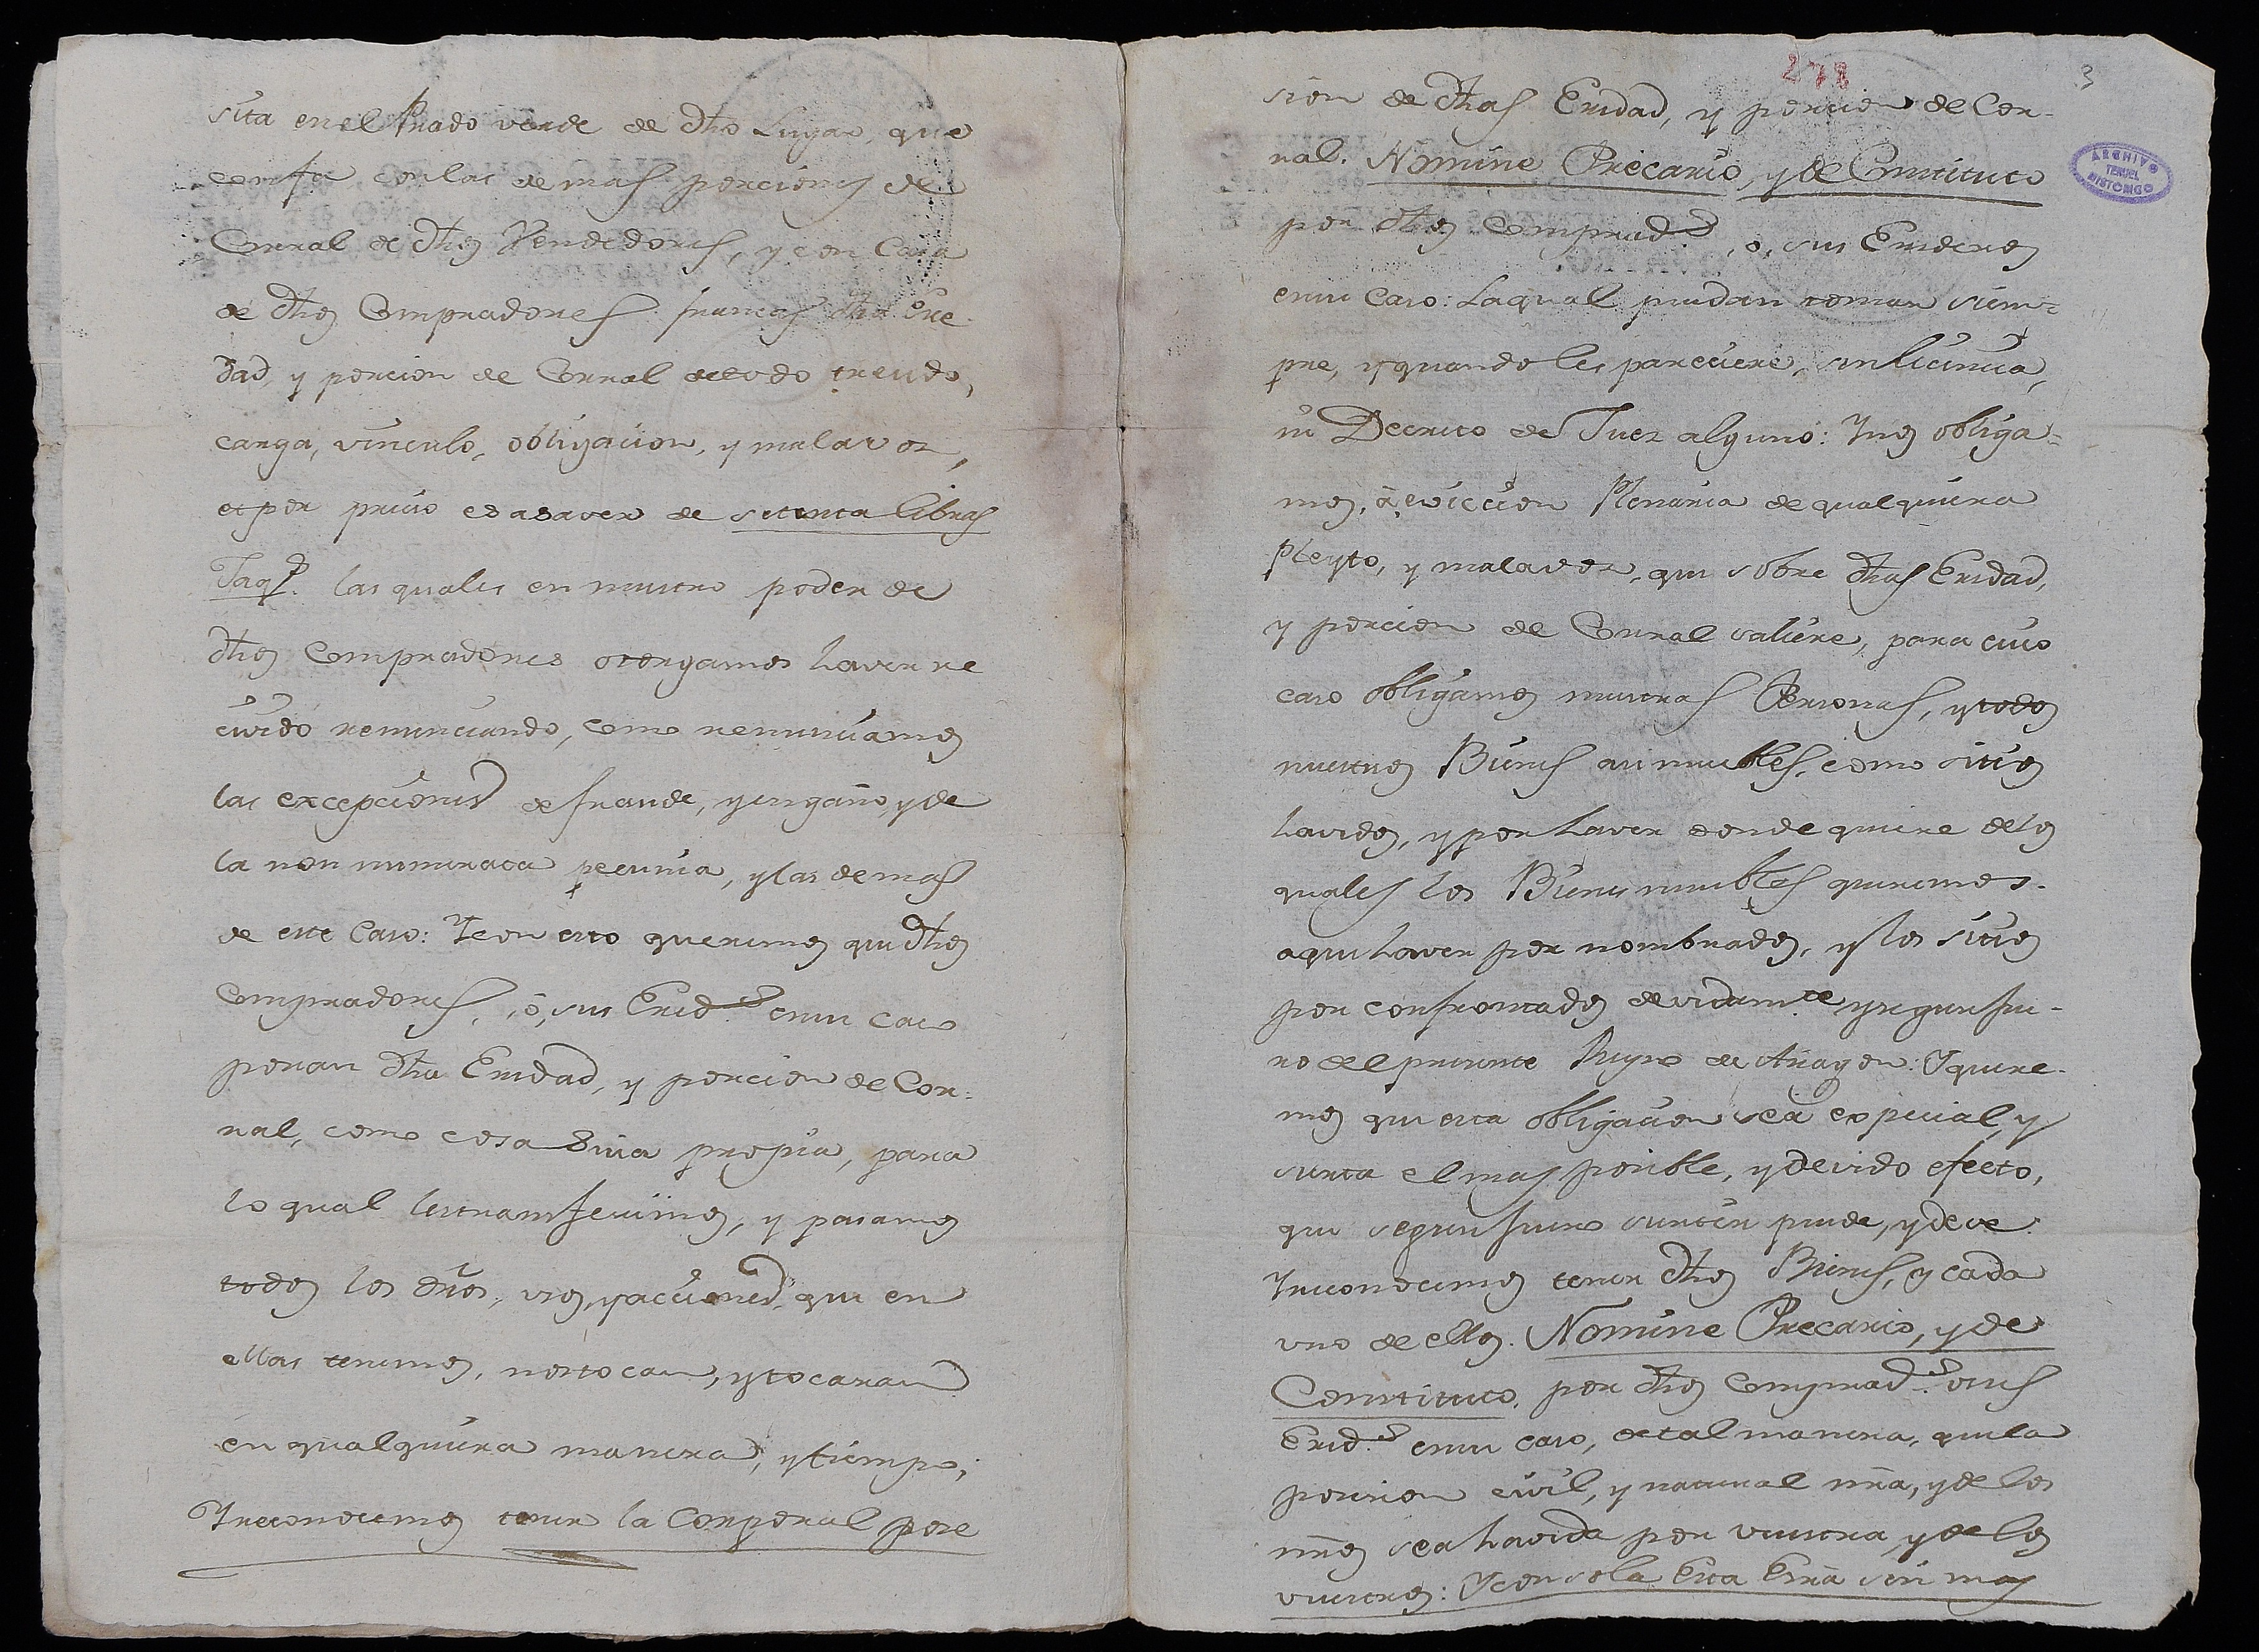 sita en el Prado verde de dho Lugar, que
confta con las demas porciones de
Corral de dhos Vendedores, y con Casa
de dhos Compradores francas dha Ere-
dad, y porcion de Corral de todo treudo,
carga, vinculo, obligacion, y mala voz,
et por precio es asaver de setenta libras
Jaqs. las quales en nuestro poder de
dhos Compradores otorgamos haver re
civido renunciando, como renunciamos
las excepciones de fraude, y engaño, y de
la non numerata pecunia, y las demas
de este Caso: Y con esto queremos que dhos
Compradores, ò, sus Ered.s en su caso
posean dha Eredad, y porcion de Cor-
ral, como cosa Suia propia, para
lo qual les transferimos, y pasamos
todos los dros, vsos, y acciones, que en
ellas tenemos, nos tocan, y tocaran
en qualquiera manera, y tiempo;
Y reconocemos tener la Corporal pose
278
3
ARCHIVO
TERUEL
HISTORICO
sion de dhas Eredad, y porcion de Cor-
ral. Nomine Precario, y de Constituto
por dhos Comprad.s, o, sus Erederos
en su Caso: La qual puedan tomar siem-
pre, y quando les pareciere, sin licencia,
ni Decreto de Juez alguno: Y nos obliga-
mos, à, eviccion Plenaria de qualquiera
Pleyto, y mala voz, que sobre dhas Eredad,
y porcion de Corral saliere, para cuio
caso obligamos nuestras Personas, y todos
nuestros Bienes asi muebles, como sitios
havidos, y por haver donde quiere de los
quales los Bienes muebles queremos
aqui haver por nombrados, y los sitios
por confrontados devidam.te y segun fue-
ro del presente Reyno de Aragon: Y quere-
mos que esta obligacion sea especial, y
surta el mas posible, y devido efecto,
que segun fuero surtir puede, y deve:
Y reconocemos tener dhos Bienes, y cada
vno de ellos. Nomine Precario, y de
Constituto, por dhos Comprad.s o sus
Ered.s en su caso, de tal manera, que la
posesion civil, y natural nra, y de los
nros sea havida por vuestra, y de los
vuestros: Y con sola Esta Esrã sin mas